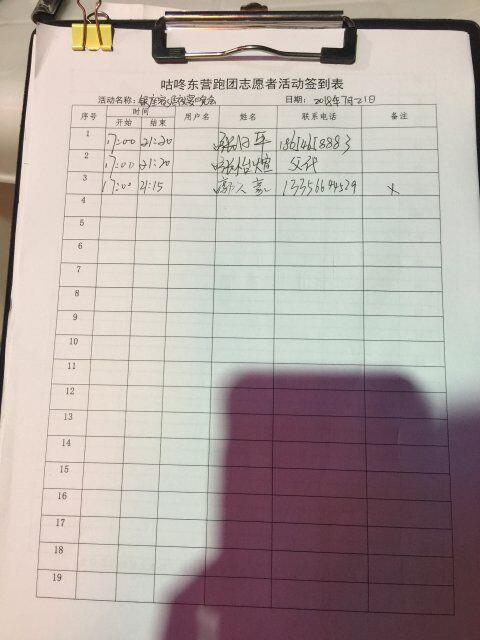 咕咚东营跑团志愿者活动签到表
活动名称: 日期: 2018年7月21日
序号 时间 用户名 姓名 联系电话 备注
开始 结束
1 17:00 21:20 18614618883
2 17:00 21:20 张怡煊 父代
3 17:00 21:15 13356644529 x
4
5
6
7
8
9
10
11
12
13
14
15
16
17
18
19